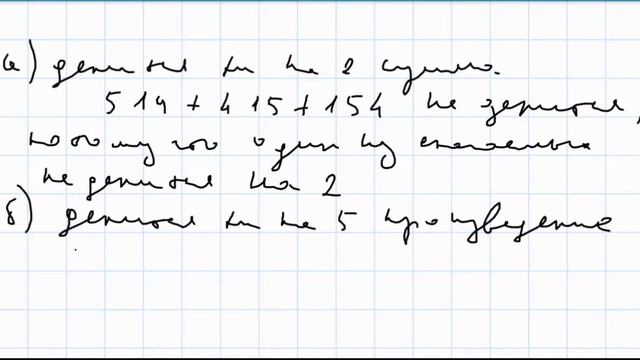 а) делится ли на 2 сумма.
514 + 415 + 154 не делится,
потому что один из слагаемых
не делится на 2
б) делится ли на 5 произведение